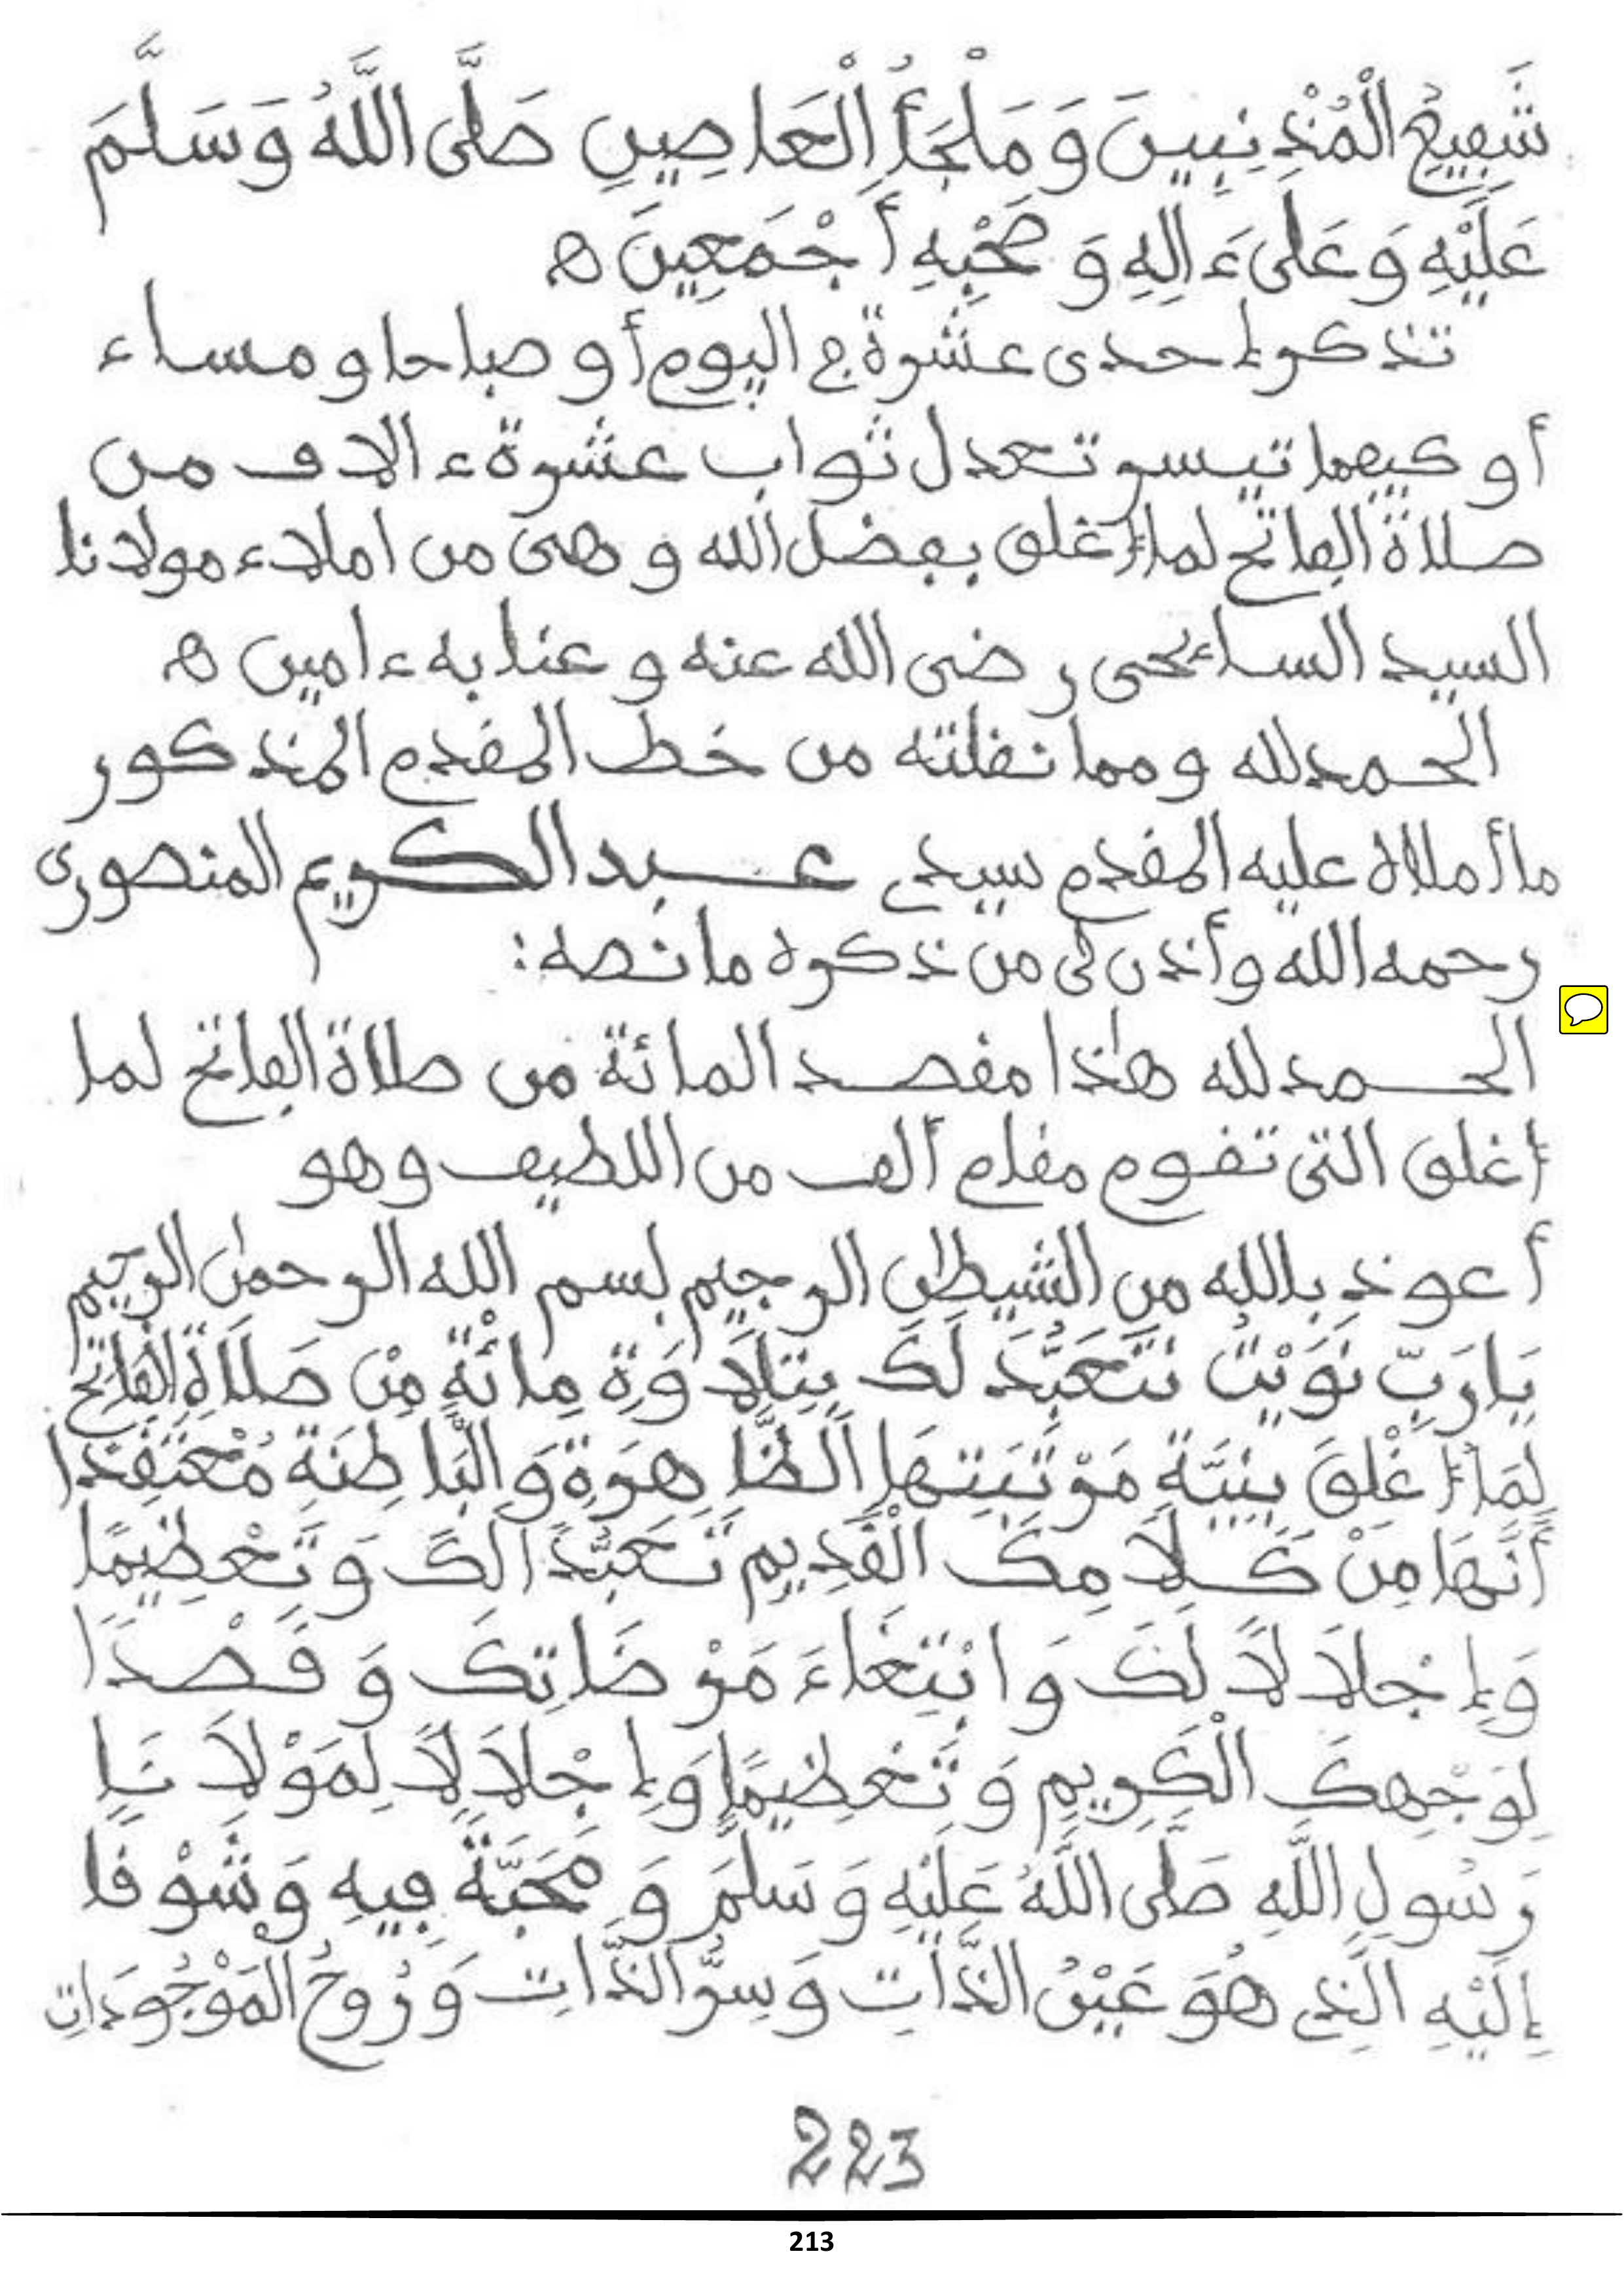 شَفِيعِ الْمُذْنِبِينَ وَمَلْجَأُ الْعَاصِينِ صَلَّى اللَّهُ وَسَلَّمَ
عَلَيْهِ وَعَلَى ءَالِهِ وَصَحْبِهِ أَجْمَعِينَ ه
تذكر إحدى عشرة في اليوم أو صباحا و مساء
أو كيفما تيسر تعدل ثواب عشرة ءالاف من
صلاة الفاتح لما أغلق بفضل الله و هى من املاء مولانا
السيد السائحى رضى الله عنه و عنا به ءامين ه
الحمد لله ومما نقلته من خط المقدم المذكور
ما أملاه عليه المقدم سيدي عبد الكريم المنصورى
رحمه الله وأذن لى من ذكره ما نصه:
الحمد لله هٰذا مقصد المائة من صلاة الفاتح لما
أغلق التى تقوم مقام ألف من اللطيف وهو
أعوذ بالله من الشيطٰن الرجيم بسم الله الرحمٰن الرحيم
يَا رَبِّ نَوَيْتُ نَتَعَبَّدَ لَكَ بِتِلَاوَةِ مِائَةٍ مِنْ صَلَاةِ الْفَاتِحِ
لِمَا أُغْلِقَ بِنِيَّةِ مَرْتَبَتِهَا الظَّاهِرَةِ وَالْبَاطِنَةِ مُعْتَقِدًا
أَنَّهَا مِنْ كَلَامِكَ الْقَدِيمِ تَعَبُّدًا لَكَ وَ تَعْظِيمًا
وَإِجْلَالًا لَكَ وَابْتِغَاءَ مَرْضَاتِكَ وَقَصْدًا
لِوَجْهِكَ الْكَرِيمِ وَتَعْظِيمًا وَإِجْلَالًا لِمَوْلَانَا
رَسُولِ اللَّهِ صَلَّى اللَّهُ عَلَيْهِ وَسَلَّمَ وَمَحَبَّةً فِيهِ وَشَوْقًا
إِلَيْهِ الَّذِي هُوَ عَيْنُ الذَّاتِ وَسِرُّ الذَّاتِ وَرُوحُ الْمَوْجُودَاتِ
223
213